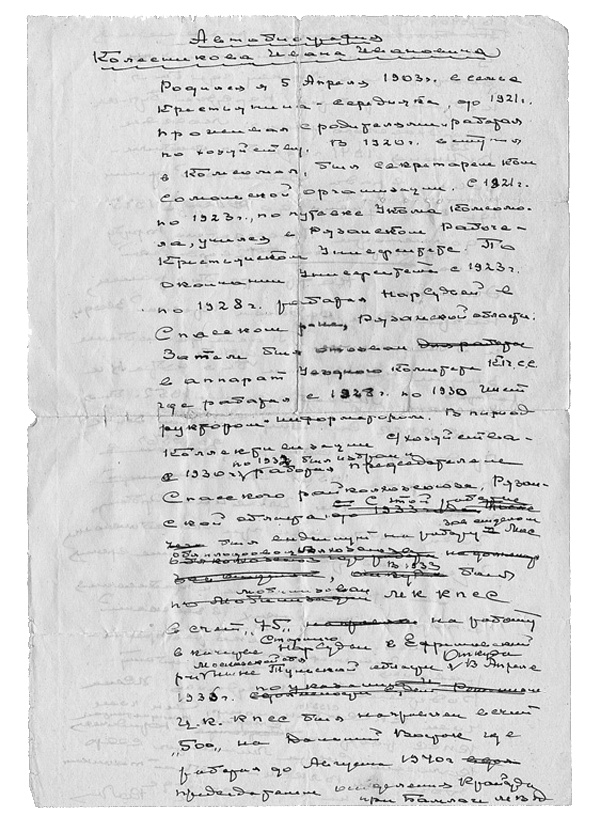 Автобиография
Колесникова Ивана Ивановича
Родился я 5 Апреля 1903г. в семье
Крестьянина-середняка, до 1921г.
проживал с родителями работал
по хозяйству. В 1920г. вступил
в Комсомол, был секретарем Ком
сомольской организации. С 1921г.
по 1923г., по путевке Укома Комсомо-
ла, учился в Рязанском Рабоче-
Крестьянском Университете. По
окончании Университета с 1923г.
по 1928г. работал Нарсудьей в
Спасском р-не, Рязанской области.
Затем был отозван для работы
в аппарат Уездного Комитета КПСС
где работал с 1928г. по 1930 Инст
руктором-информатором. В период
Коллективизации с/хозяйства-
по 1932 был избран и
в 1930г. работал председателем
Спасского райколхозсоюза, Рязан-
ской области. С этой работы
1933
зав отделом
был выдвинут на работу в Мос
облплодо
В 1933
был
мобилизован
по мобилизации МК КПСС
в счет „75„ на работу
Старшего
в качестве Нарсудьи в Ефремовский
Московской обл
районе Тульской области Откуда В Апреле
1936.
Ц.К. КПСС был направлен в счет
„500„ на Дальний Восток где
работал до Августа 1940г.
председателем отделения Крайсуда
при Бамлаг МВД